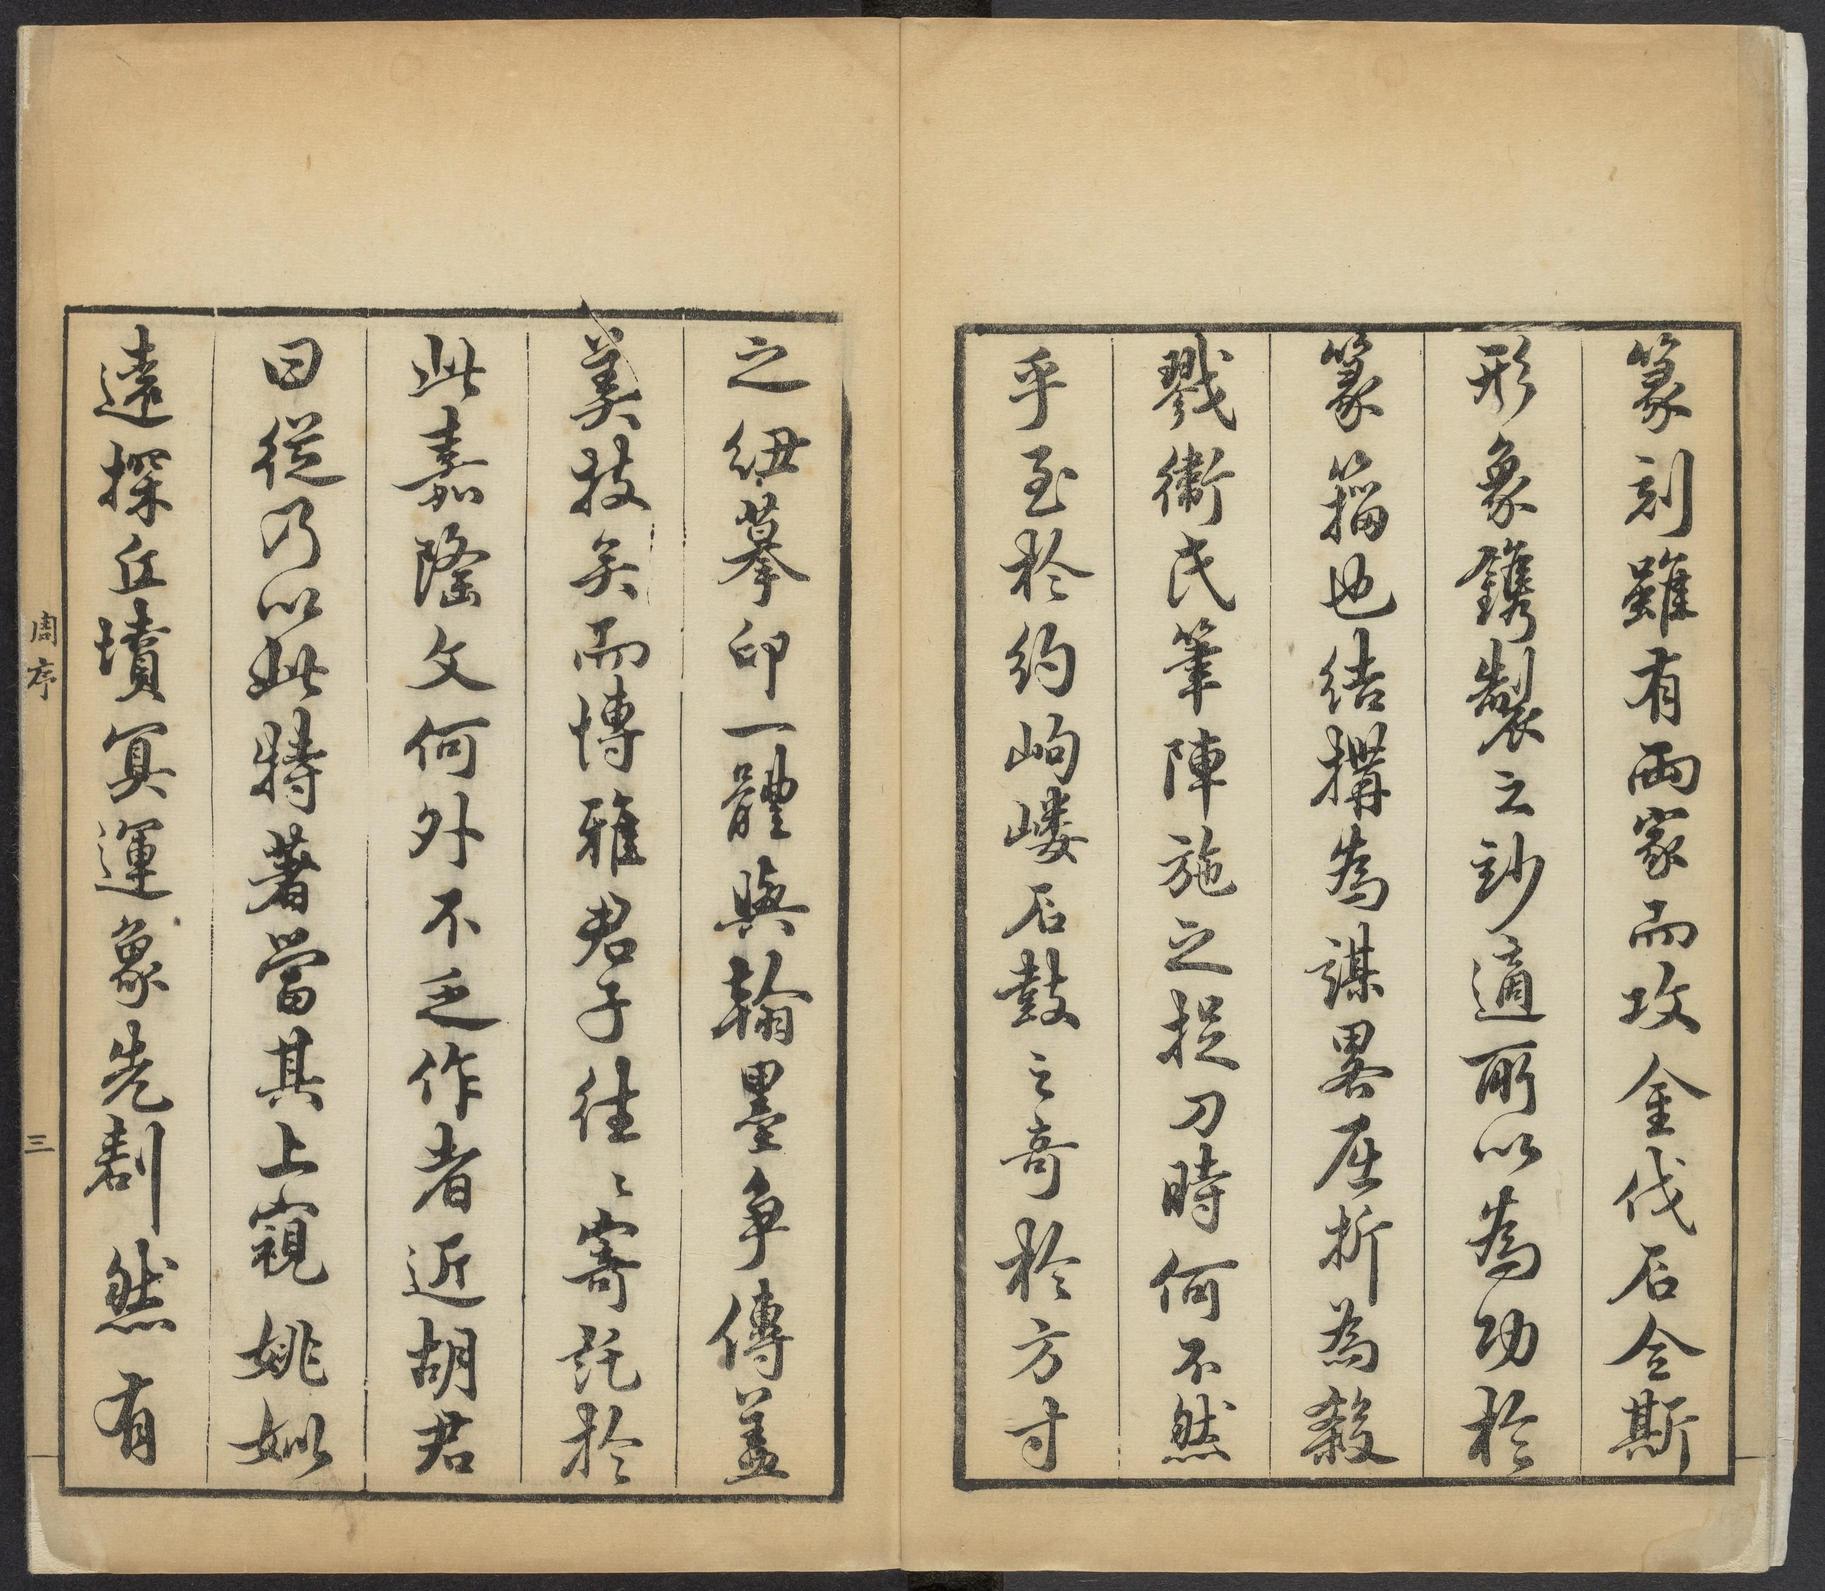 篆刻雖有兩家而攻金伐石合斯
形象鐫製之玅適所以為功於
篆籀也結搆為謀畧屈折為殺
戮衞氏筆陣施之捉刀時何不然
乎至於約岣嶁石鼓之奇於方寸
之紐摹印一體與翰墨争傳盖
美技矣而博雅君子往〻寄託於
此嘉隆文何外不乏作者近胡君
曰從乃以此特著當其上窺姚姒
遠探丘墳冥運象先劃然有
周序
三